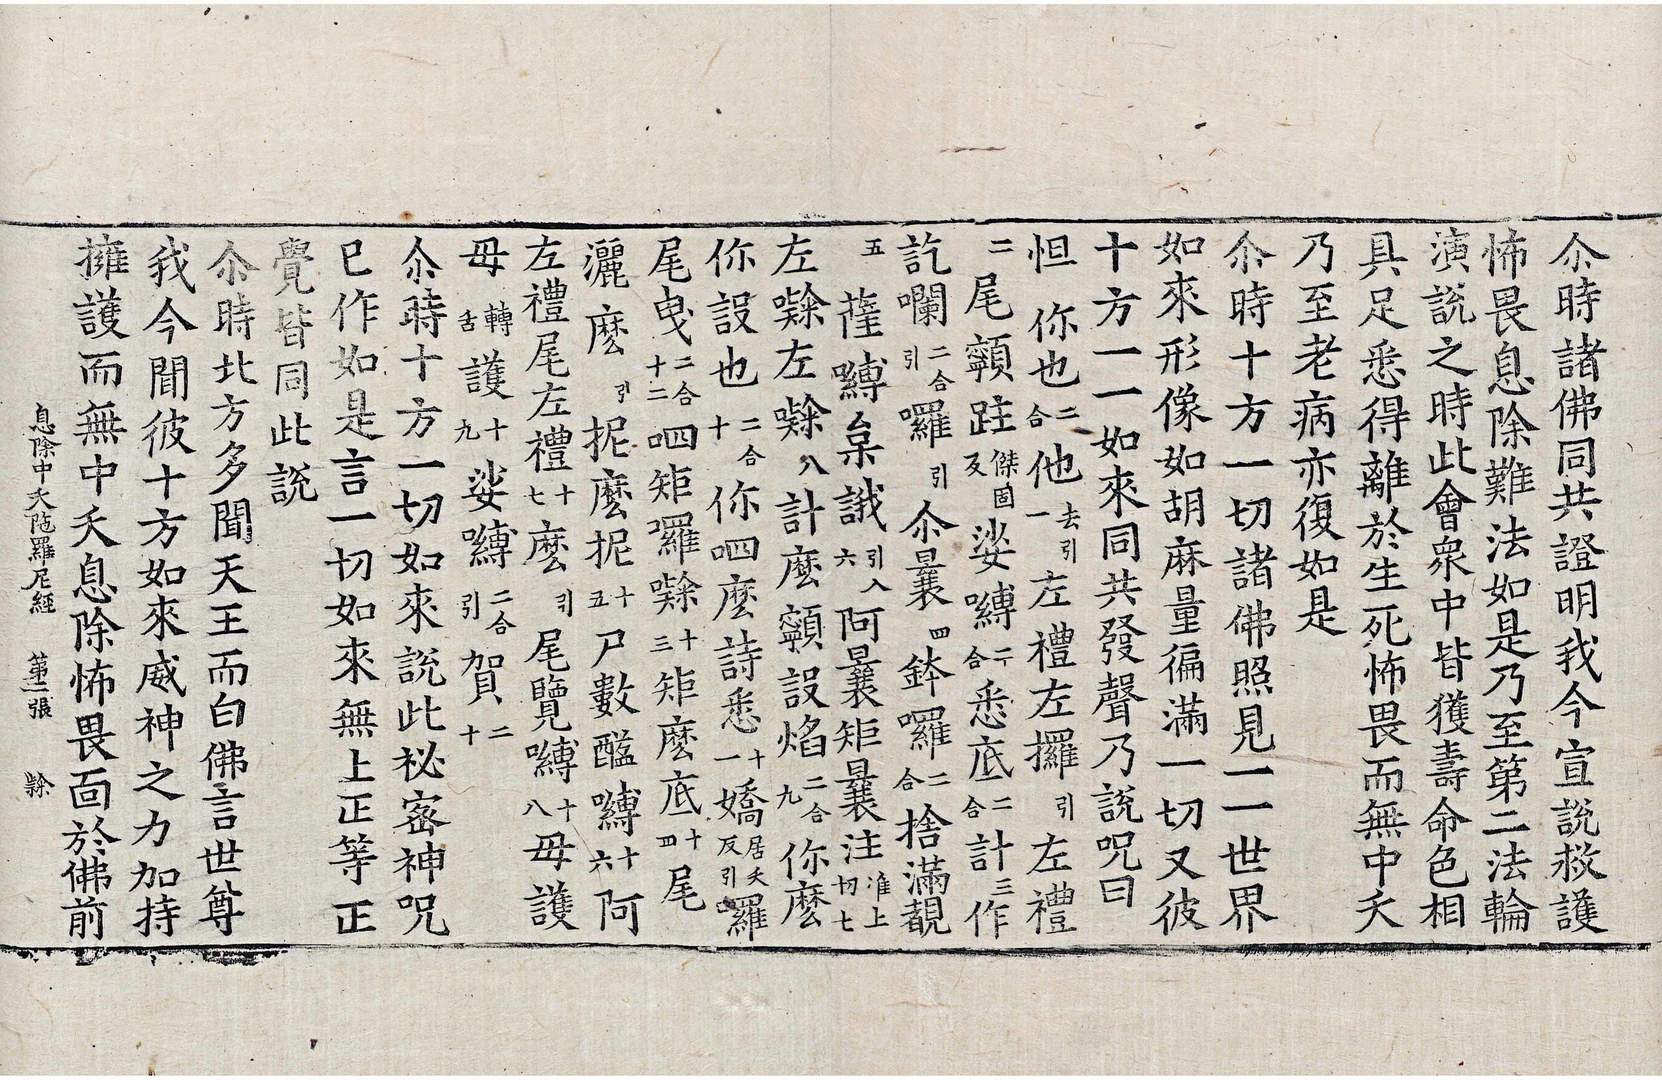 尒時諸佛同共證明我今宣說救護
怖畏息除難法如是乃至第二法輪
演說之時此會衆中皆獲壽命色相
具足悉得離於生死怖畏而無中夭
乃至老病亦復如是
尒時十方一切諸佛照見一一世界
如來形像如胡麻量徧滿一切又彼
十方一一如來同共發聲乃說呪曰
怛你也二合他去引一左禮左攞引左禮
二尾顐跓傑固反娑嚩二合悉底二合計三作
訖囒二合引囉引尒曩四鉢囉二合捨滿覩
五薩嚩枲誐引入六阿曩矩曩注准上切七
左㘑左㘑八計麽顐設焰二合九你麽
你設也二合十你呬麽詩悉十一嬌居夭反引囉
尾曳二合十二呬矩囉㘑十三矩麽底十四尾
灑麽引抳麽抳十五尸數醯嚩十六阿
左禮尾左禮十七麽引尾覽嚩十八毋護
毋轉舌護十九娑嚩二合引賀二十
尒時十方一切如來說此祕密神呪
巳作如是言一切如來無上正等正
覺皆同此說
尒時北方多聞天王而白佛言世尊
我今聞彼十方如來威神之力加持
擁護而無中夭息除怖畏面於佛前
息除中夭陁羅尼經 第二張